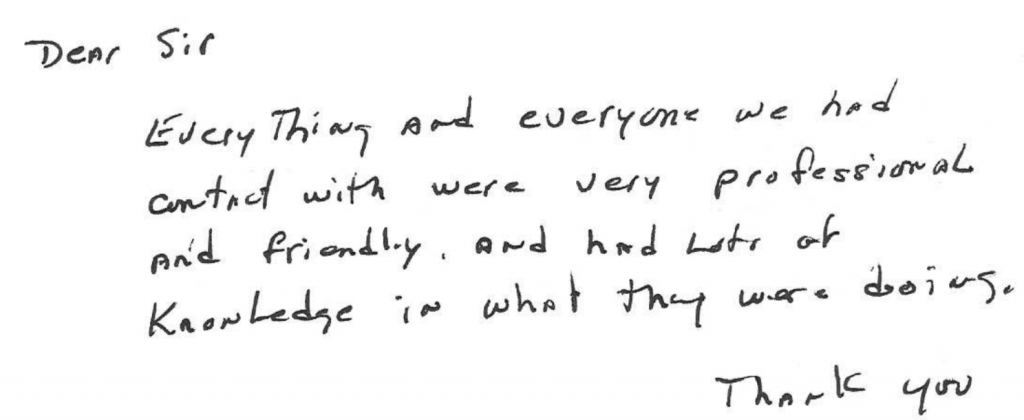 Dear Sir
Every Thing and everyone we had
contact with were very professional
and friendly. and had Lots of
Knowledge in what they were doing.
Thank you